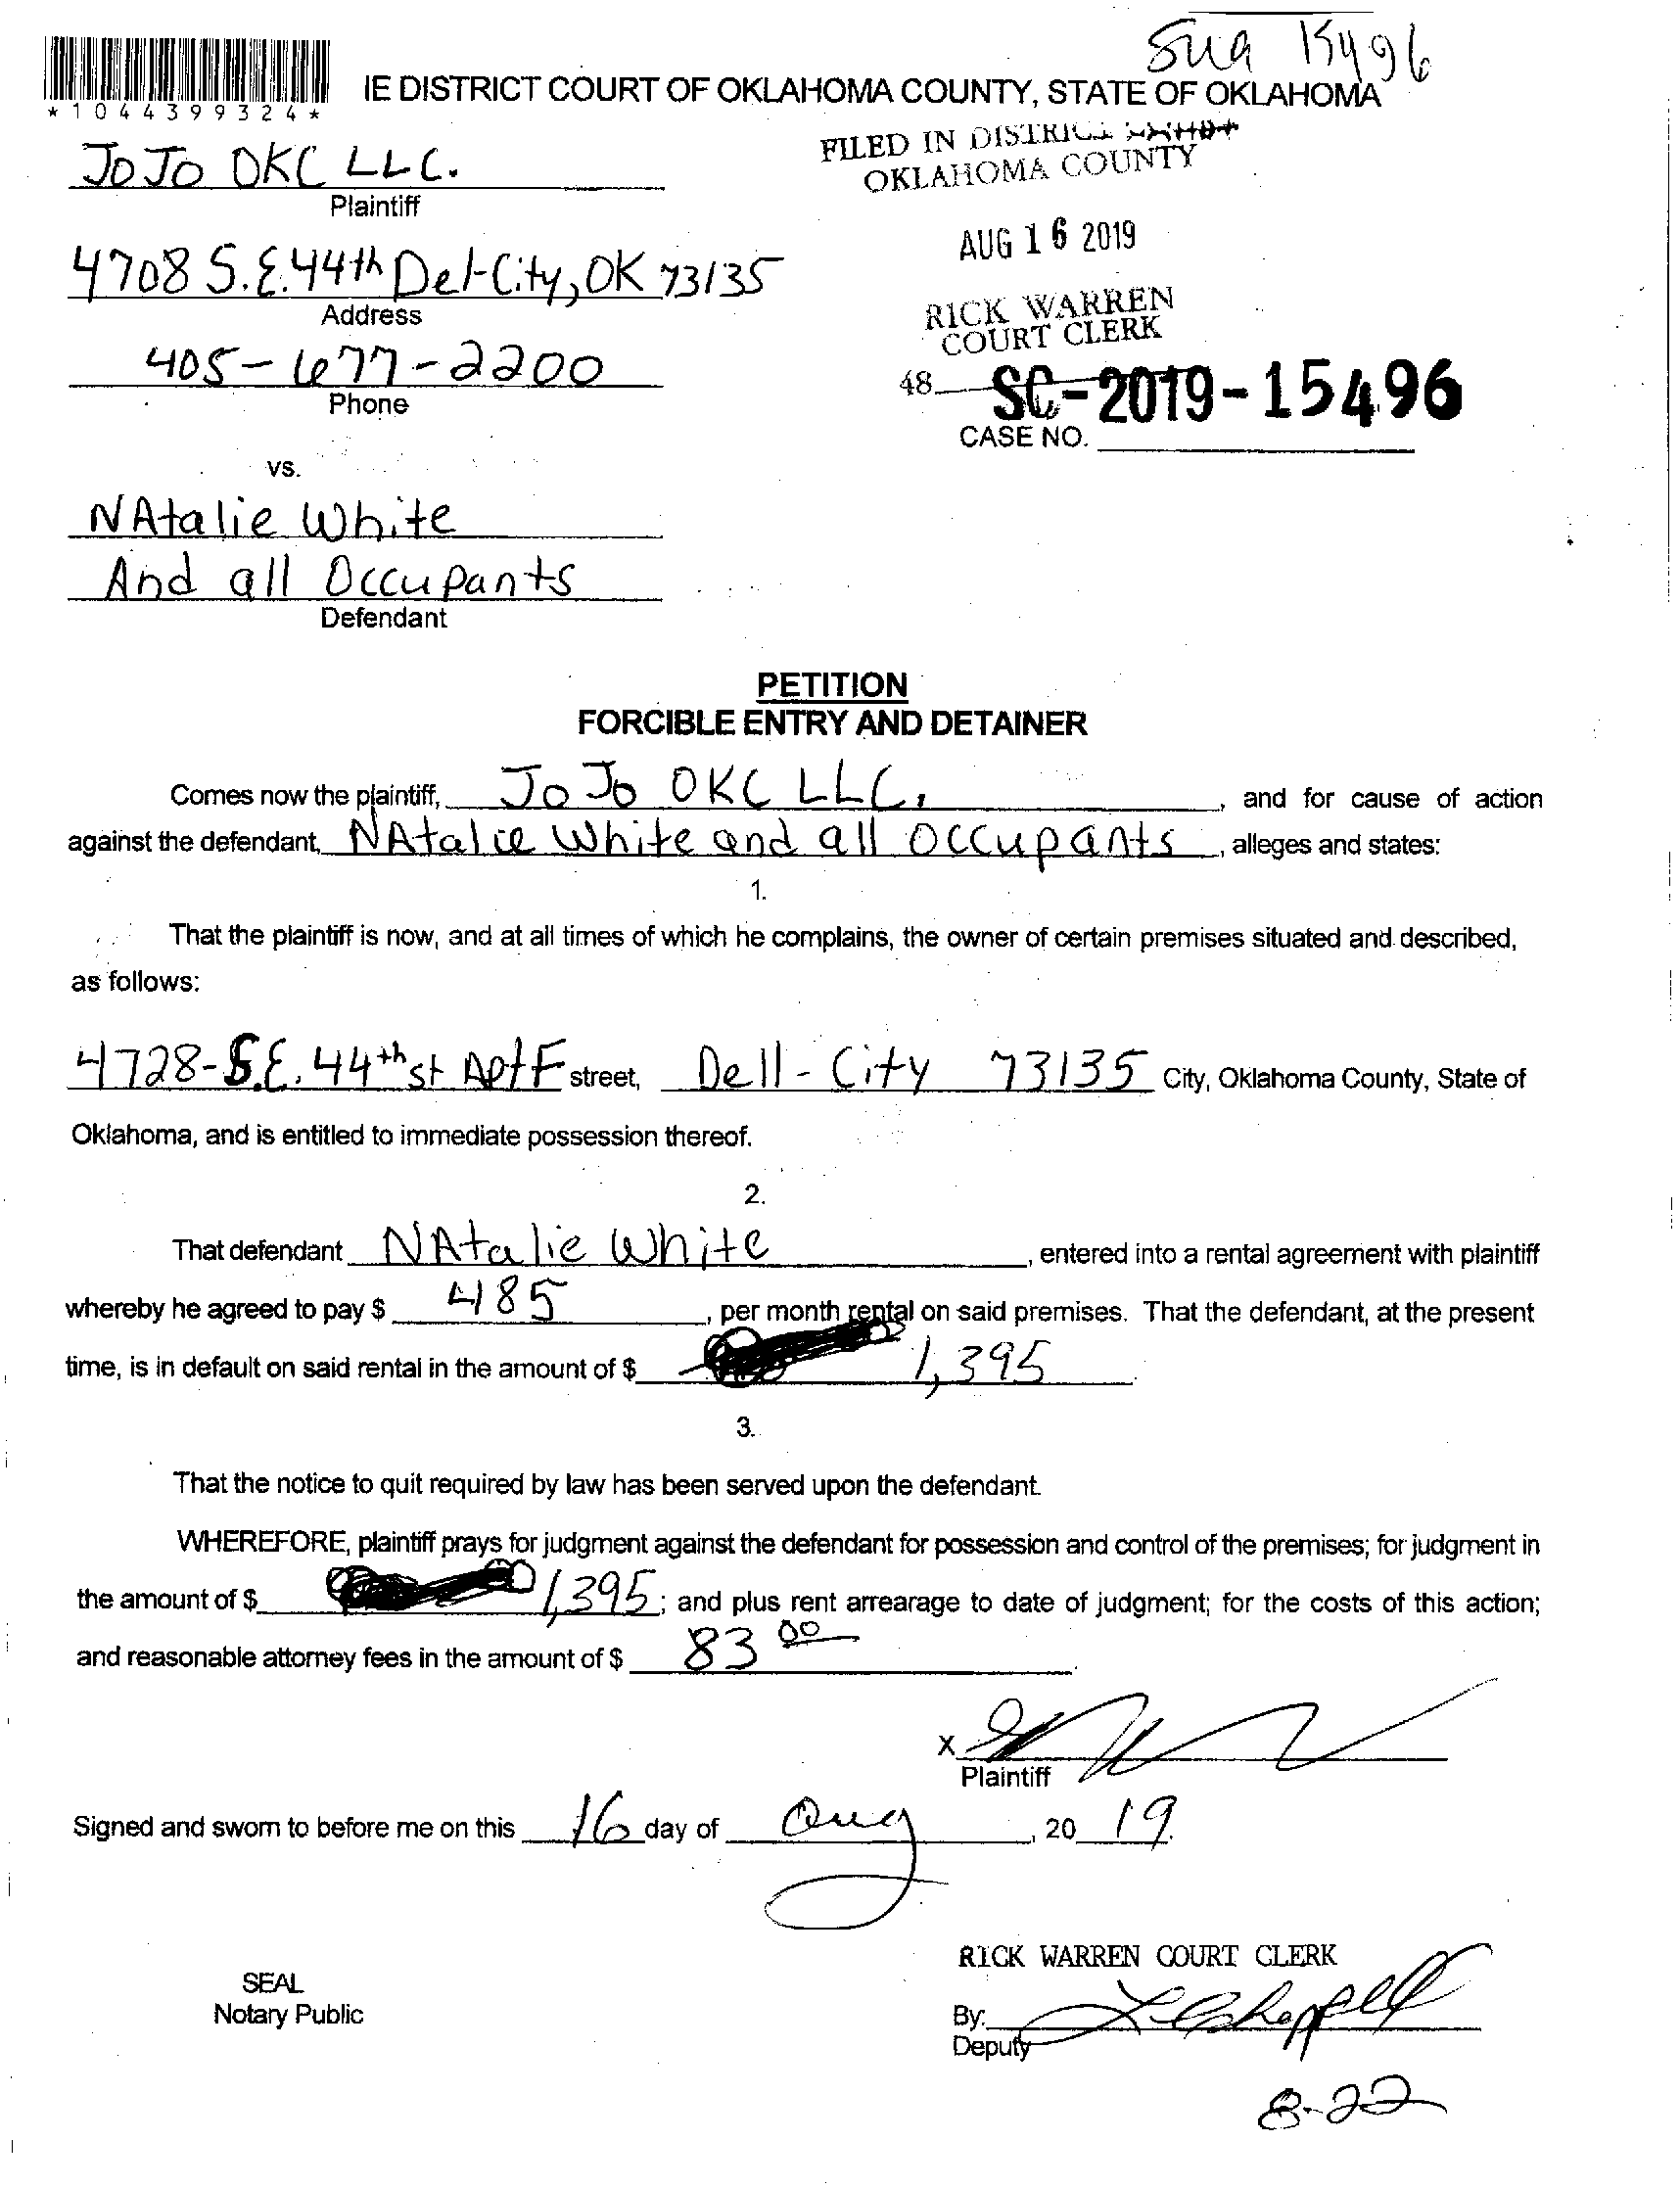 15496
IE DISTRICT COURT OF OKLAHOMA COUNTY, STATE OF OKLAHOMA
*1044399324*
FILED IN DISTRICT COURT
OKLAHOMA COUNTY
JOJO OKC LLC.
Plaintiff
AUG 16 2019
4708 S.E. 44th Del-City, OK 73135
Address
RICK WARREN
COURT CLERK
405-677-2200
Phone
48
SC-2019-15496
CASE NO.
vs.
NAtalie White
And all Occupants
Defendant
PETITION
FORCIBLE ENTRY AND DETAINER
Comes now the plaintiff, JoJo OKC LLC, , and for cause of action
against the defendant, NAtalie White and all occupants, alleges and states:
1.
That the plaintiff is now, and at all times of which he complains, the owner of certain premises situated and described,
as follows:
4728-S.E. 44th st Apt F street, Dell-City 73135 City, Oklahoma County, State of
Oklahoma, and is entitled to immediate possession thereof.
2.
That defendant NAtalie White, entered into a rental agreement with plaintiff
whereby he agreed to pay $ 485, per month rental on said premises. That the defendant, at the present
time, is in default on said rental in the amount of $ 1,395.
3.
That the notice to quit required by law has been served upon the defendant.
WHEREFORE, plaintiff prays for judgment against the defendant for possession and control of the premises; for judgment in
the amount of $ 1,395; and plus rent arrearage to date of judgment; for the costs of this action;
and reasonable attorney fees in the amount of $ 83 00.
X
Plaintiff
Signed and sworn to before me on this 16 day of Aug, 20 19.
RICK WARREN COURT CLERK
SEAL
Notary Public
By:
Deputy
8-22